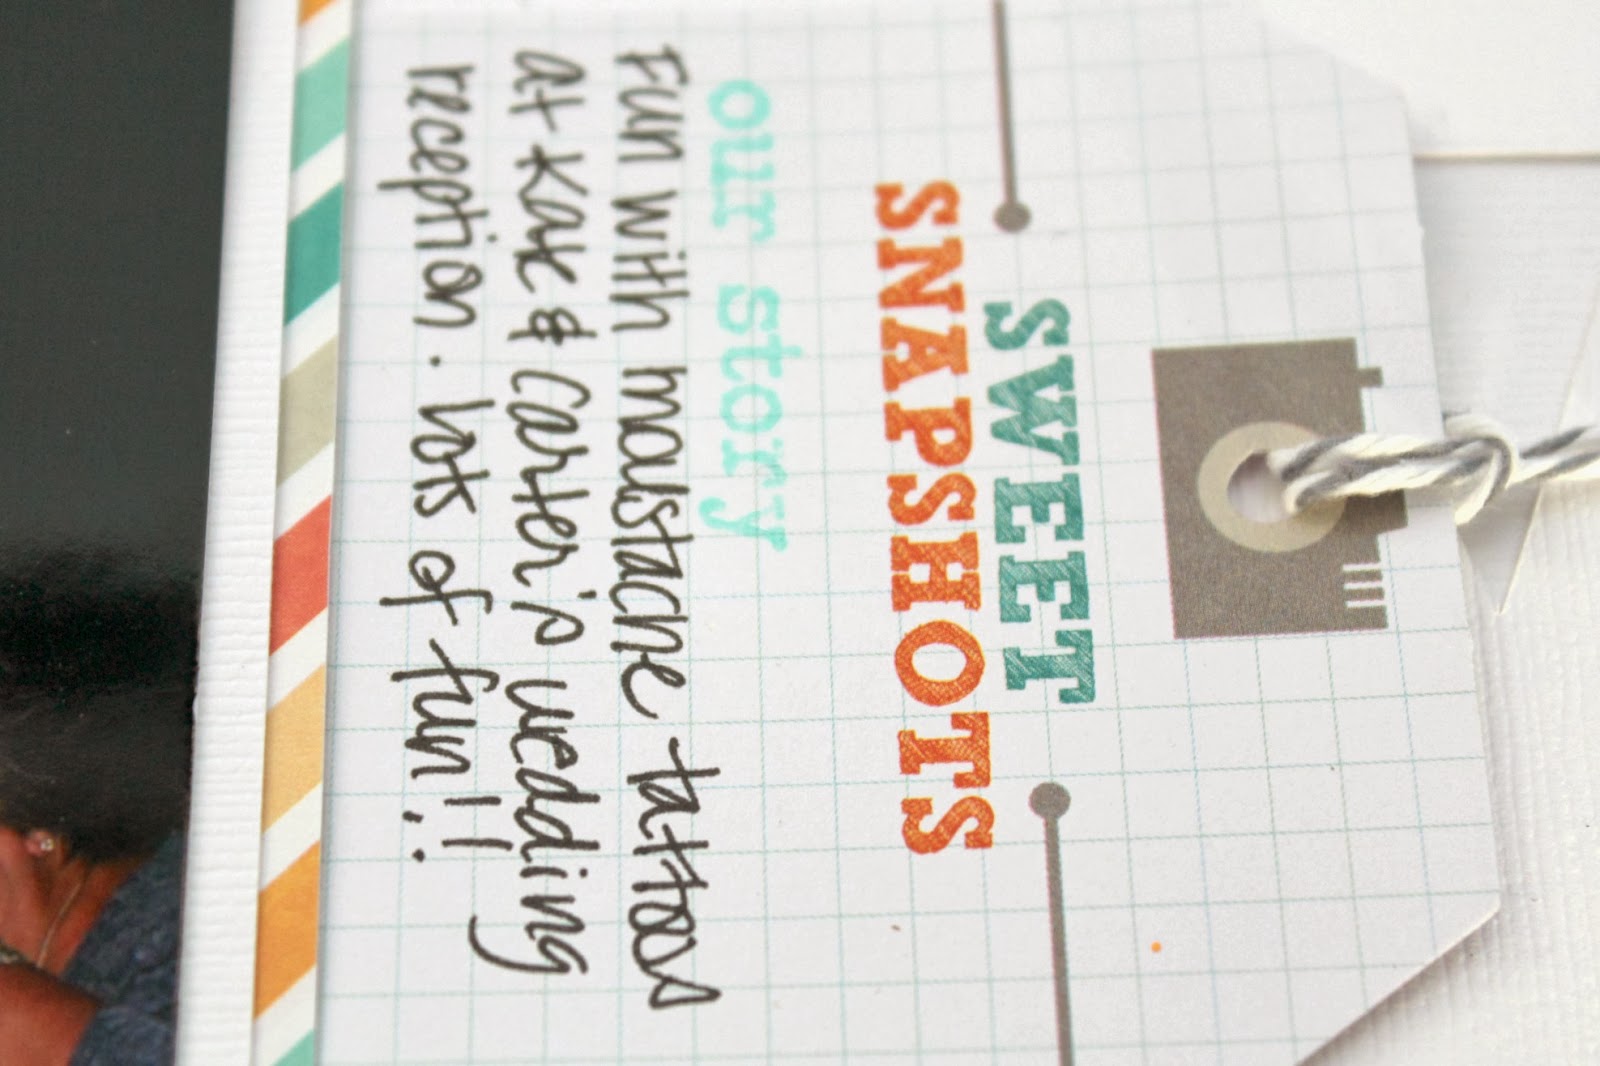 SWEET
SNAPSHOTS
our story
Fun with moustache tattoos
at Kae & Carter's wedding
reception. Lots of fun!!